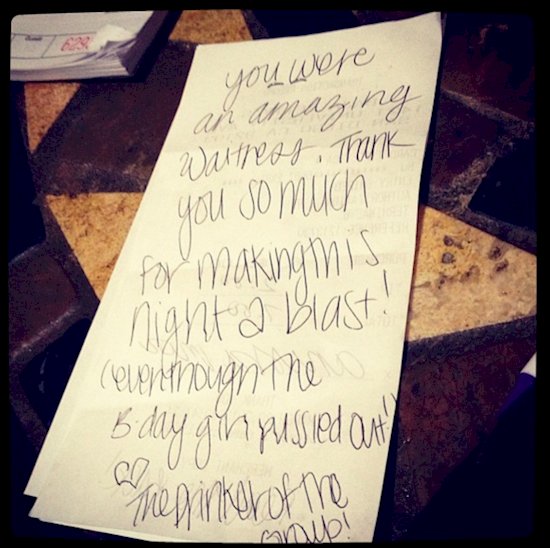 you were
an amazing
waitress. Thank
you so much
for making this
night a blast!
(even though the
B-day girl pussied out!)
♡ The Drinker of the
Group!